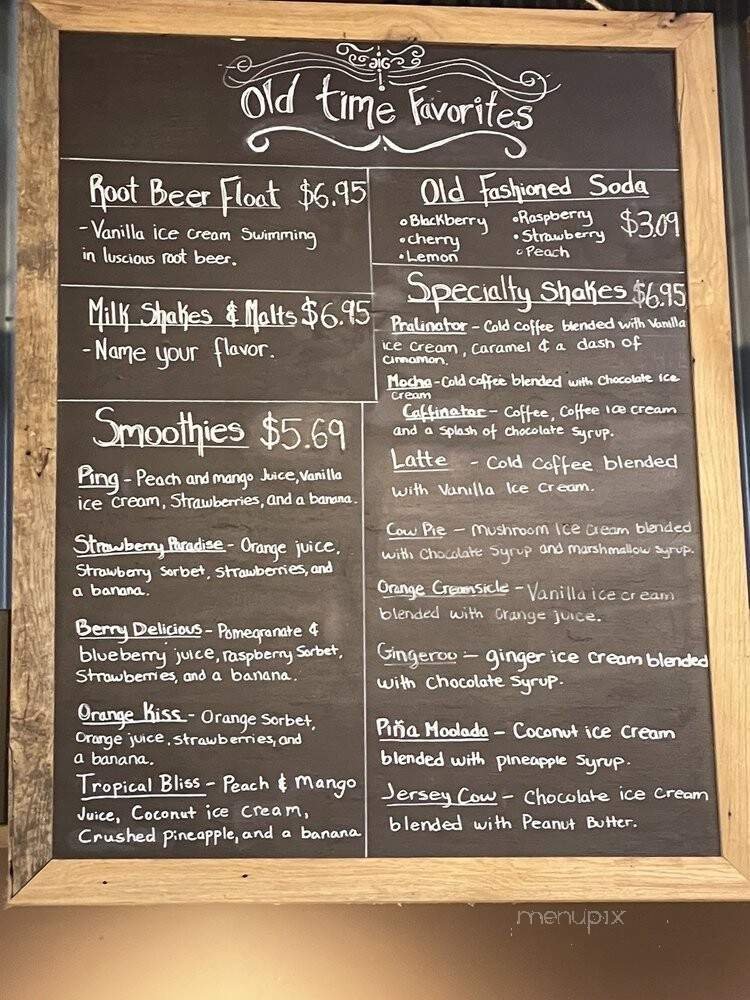 Old time Favorites
Root Beer Float $6.95
- Vanilla ice cream Swimming
in luscious root beer.
Milk Shakes & Malts $6.95
- Name your flavor.
Smoothies $5.69
Ping - Peach and mango Juice, Vanilla
ice cream, Strawberries, and a banana.
Strawberry Paradise - Orange juice,
Strawberry Sorbet, Strawberries, and
a banana.
Berry Delicious - Pomegranate &
blueberry juice, raspberry Sorbet,
Strawberries, and a banana.
Orange Kiss - Orange Sorbet,
Orange juice, strawberries, and
a banana.
Tropical Bliss - Peach & Mango
Juice, Coconut ice cream,
Crushed pineapple, and a banana
Old Fashioned Soda
• Blackberry • Raspberry $3.09
• cherry • Strawberry
• Lemon • Peach
Specialty Shakes $6.95
Pralinator - Cold coffee blended with Vanilla
ice cream, Caramel & a dash of
Cinnamon.
Mocha - Cold Coffee blended with Chocolate Ice
Cream
Caffinator - Coffee, Coffee Ice cream
and a Splash of Chocolate Syrup.
Latte - Cold Coffee blended
with Vanilla Ice Cream.
Cow Pie - Mushroom Ice Cream blended
with Chocolate Syrup and marshmallow syrup.
Orange Creamsicle - Vanilla ice cream
blended with orange juice.
Gingeroo - ginger ice cream blended
with Chocolate Syrup.
Piña Moolada - Coconut ice cream
blended with pineapple syrup.
Jersey Cow - Chocolate ice cream
blended with Peanut Butter.
menupix